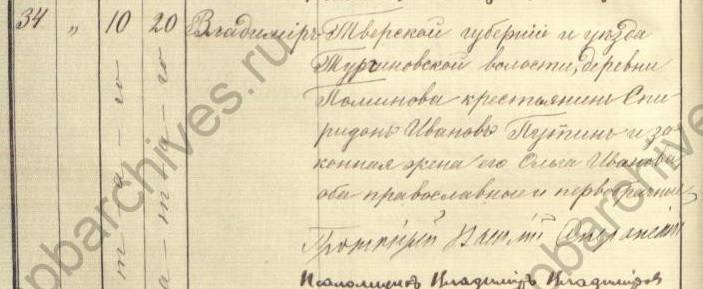 34 „ 10 20 Владиміръ Тверской губерніи и уѣзда
Тургиновской волости, деревни
Поминова крестьянинъ Спи
ридонъ Ивановъ Путинъ и за
конная жена его Ольга Иванова
оба православные и первобрачные
Протоіерей
Псаломщикъ Владиміръ Владиміровъ
т-а-го
а-т-а-го
spbarchives.ru
spbarchives